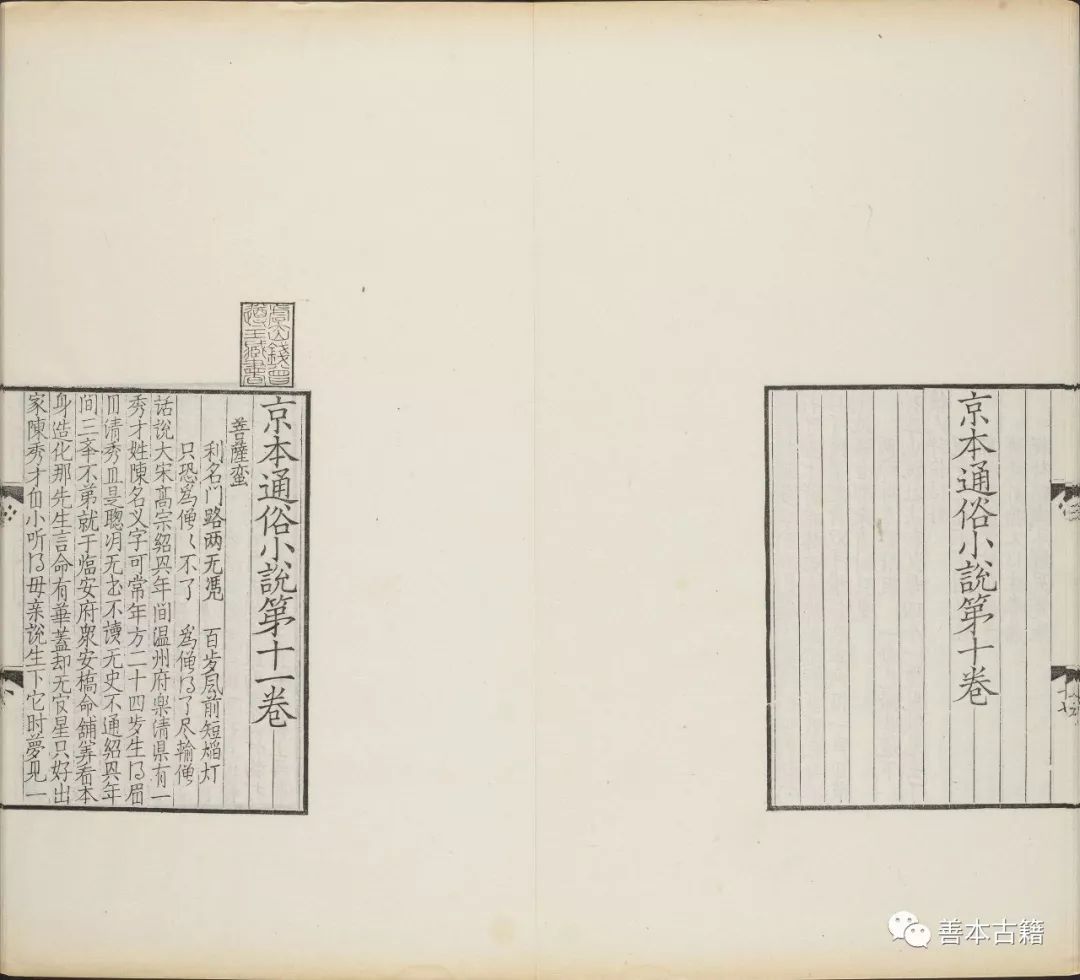 京本通俗小說第十卷
虞山錢曾
遵王藏書
京本通俗小說第十一卷
菩薩蛮
利名门路两无凭 百岁風前短熖灯
只恐為僧〻不了 為僧得了尽輸僧
話說大宋高宗紹兴年间温州府樂清県有一
秀才姓陳名义字可常年方二十四岁生得眉
目清秀且是聪明无书不讀无史不通紹兴年
间三举不第就于临安府衆安橋命舖筭看本
身造化那先生言命有華蓋却无官星只好出
家陳秀才自小听得毋亲說生下它时夢见一
善本古籍